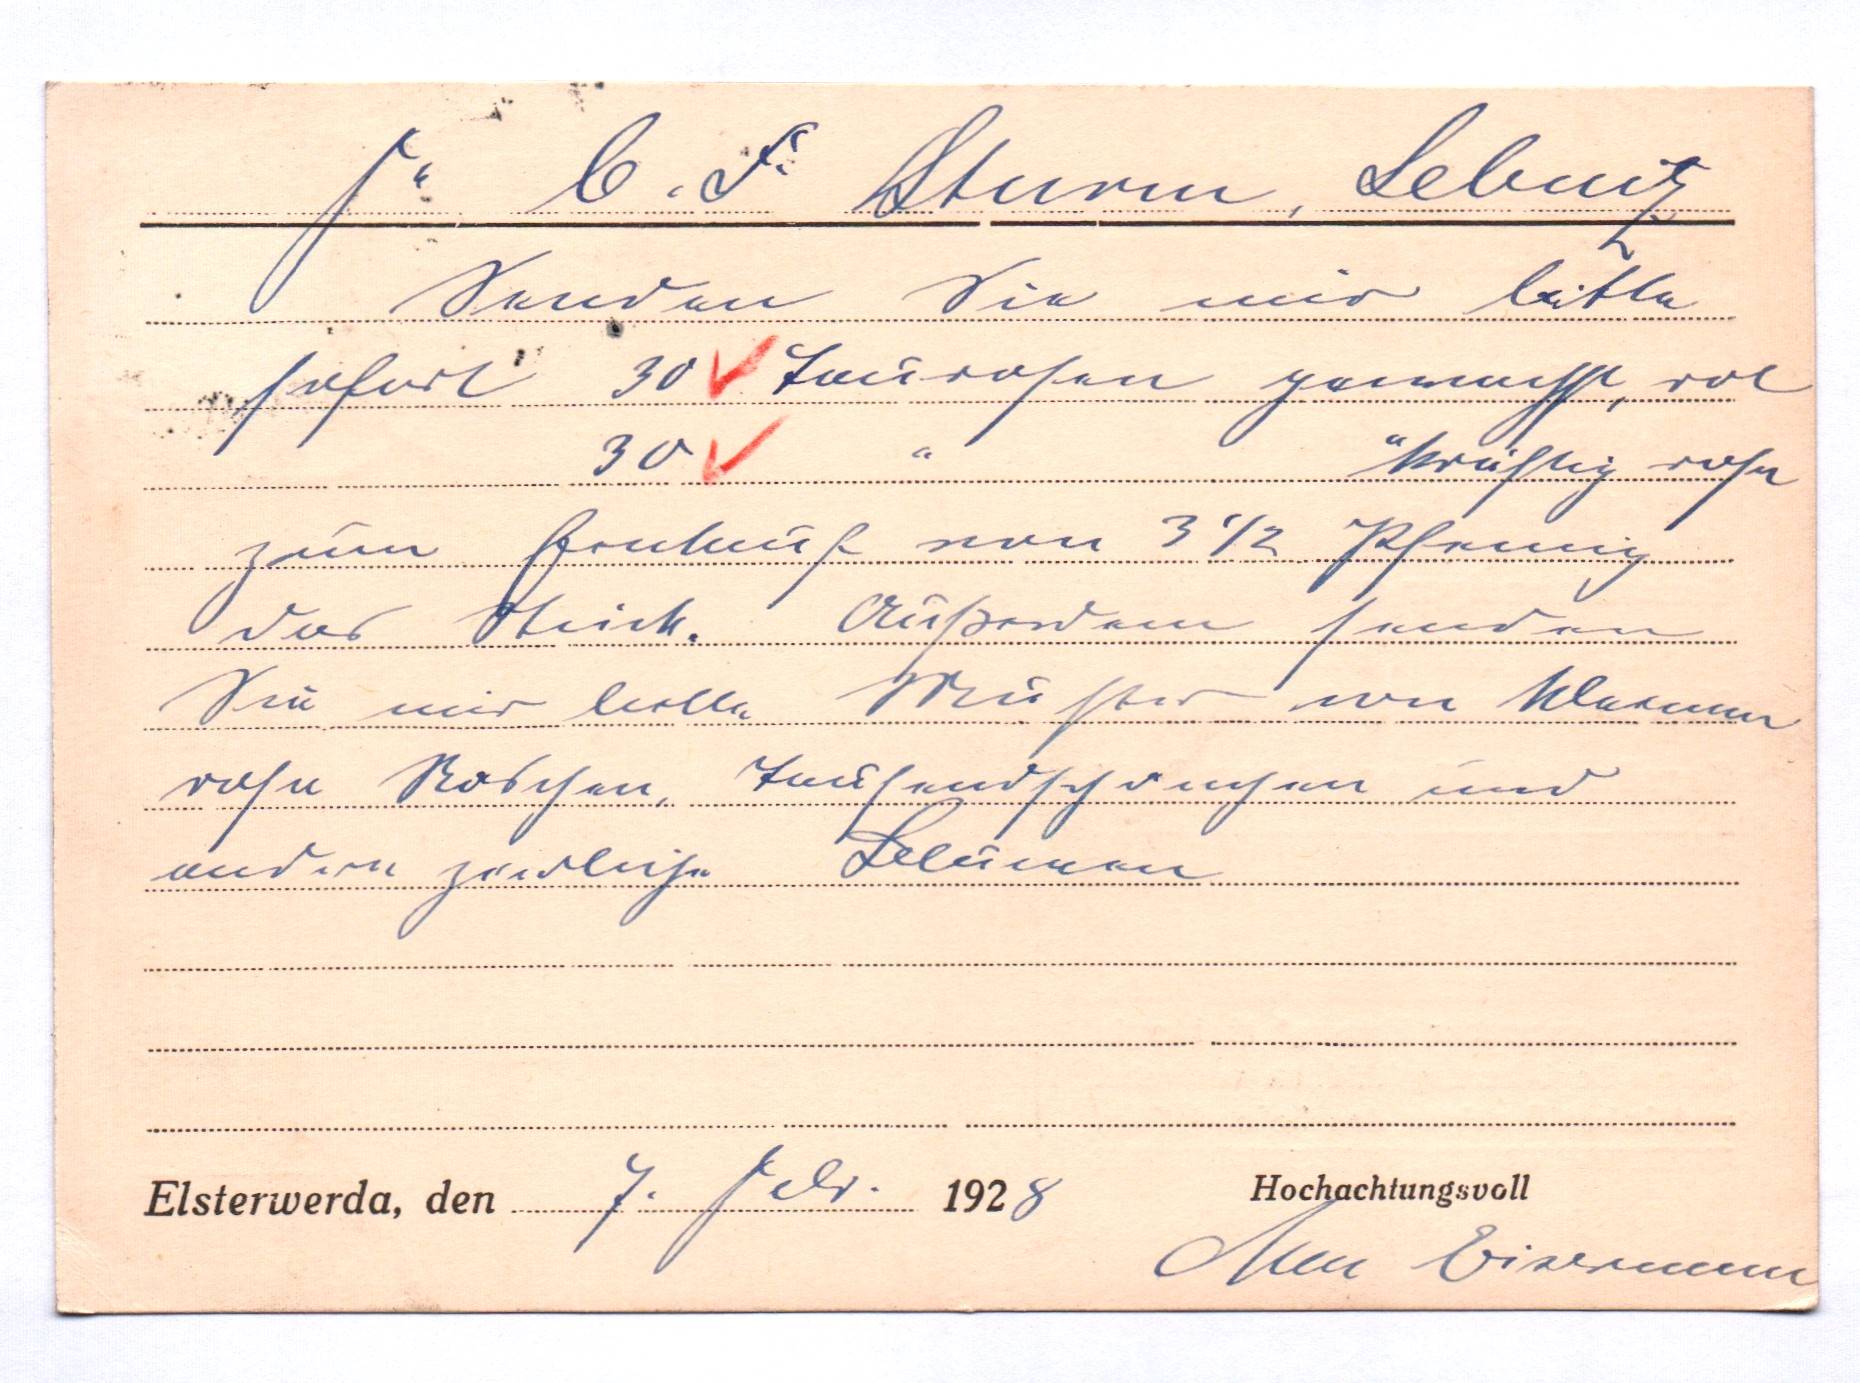 Fa C. F. Sturm, Sebnitz
Senden Sie mir bitte
sofort 30 Taurosen gewachst, rot
30 " " kräftig rosa
zum von 3 1/2 Pfennig
das Stück. Außerdem senden
Sie mir bitte Muster von kleinen
rosa Röschen, Tausendschönchen und
andere zierliche Blumen
Elsterwerda, den 7. Febr. 1928 Hochachtungsvoll
Eisermann